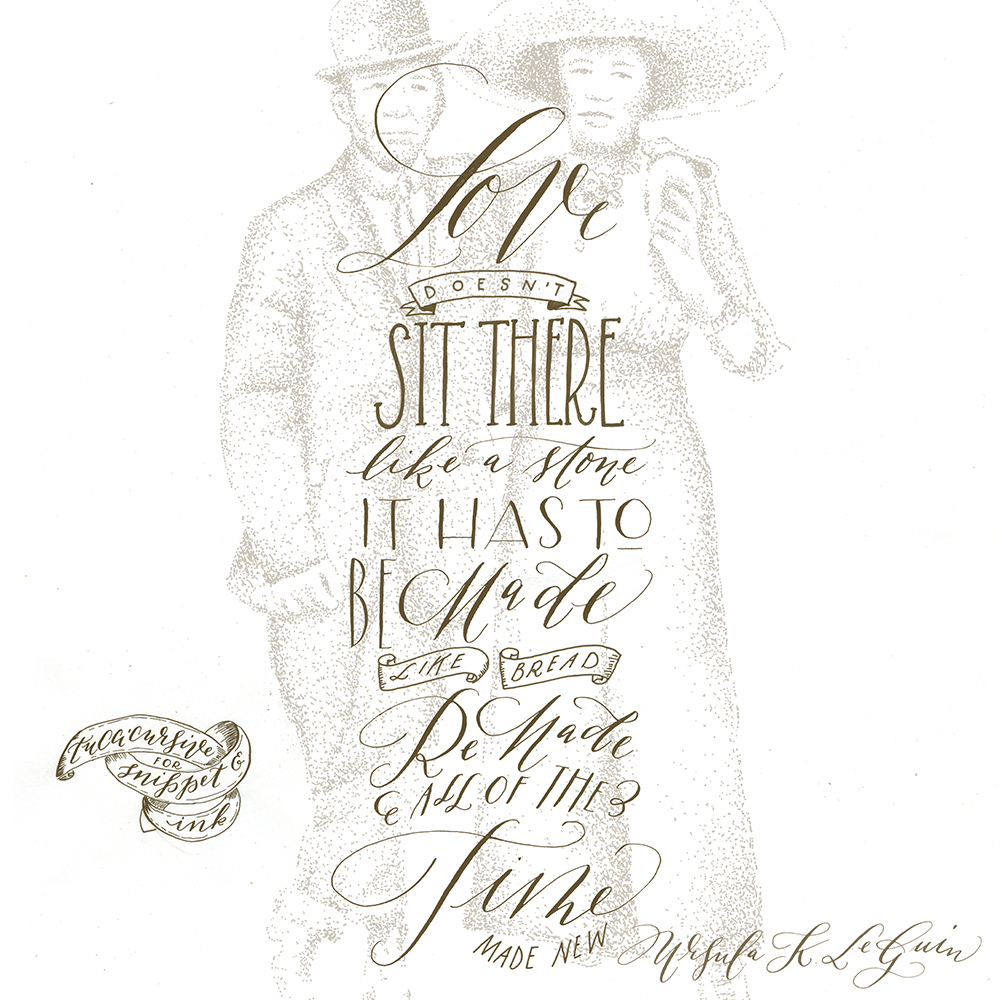 Love
DOESN'T
SIT THERE
like a stone
IT HAS TO
BE Made
LIKE BREAD
ReMade
ALL OF THE
Time
MADE NEW
Ursula K. LeGuin
tucacursive
FOR
snippet &
ink